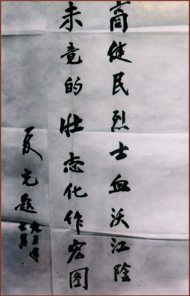 高健民烈士血沃江阴
未竟的壮志化作宏图
夏克题